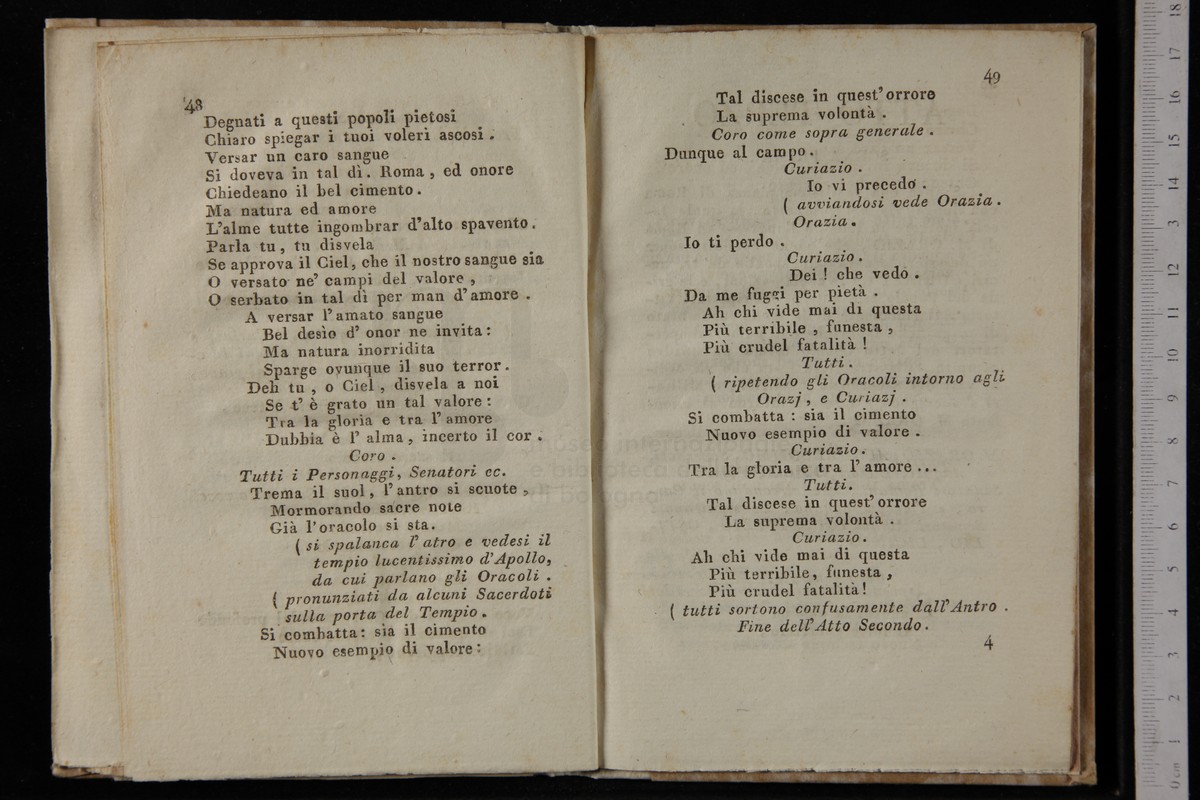 48
Degnati a questi popoli pietosi
Chiaro spiegar i tuoi voleri ascosi.
Versar un caro sangue
Si doveva in tal dì. Roma, ed onore
Chiedeano il bel cimento.
Ma natura ed amore
L'alme tutte ingombrar d'alto spavento.
Parla tu, tu disvela
Se approva il Ciel, che il nostro sangue sia
O versato ne' campi del valore,
O serbato in tal dì per man d'amore.
A versar l'amato sangue
Bel desìo d' onor ne invita:
Ma natura inorridita
Sparge ovunque il suo terror.
Deh tu, o Ciel, disvela a noi
Se t' è grato un tal valore:
Tra la gloria e tra l'amore
Dubbia è l' alma, incerto il cor.
Coro.
Tutti i Personaggi, Senatori ec.
Trema il suol, l'antro si scuote,
Mormorando sacre note
Già l'oracolo si sta.
( si spalanca l' atro e vedesi il
tempio lucentissimo d'Apollo,
da cui parlano gli Oracoli.
( pronunziati da alcuni Sacerdoti
sulla porta del Tempio.
Si combatta: sia il cimento
Nuovo esempio di valore:
49
Tal discese in quest' orrore
La suprema volontà.
Coro come sopra generale.
Dunque al campo.
Curiazio.
Io vi precedo.
( avviandosi vede Orazia.
Orazia.
Io ti perdo.
Curiazio.
Dei! che vedo.
Da me fuggi per pietà.
Ah chi vide mai di questa
Più terribile, funesta,
Più crudel fatalità!
Tutti.
( ripetendo gli Oracoli intorno agli
Orazj, e Curiazj.
Si combatta: sia il cimento
Nuovo esempio di valore.
Curiazio.
Tra la gloria e tra l'amore...
Tutti.
Tal discese in quest' orrore
La suprema volontà.
Curiazio.
Ah chi vide mai di questa
Più terribile, funesta,
Più crudel fatalità!
( tutti sortono confusamente dall'Antro.
Fine dell'Atto Secondo.
4